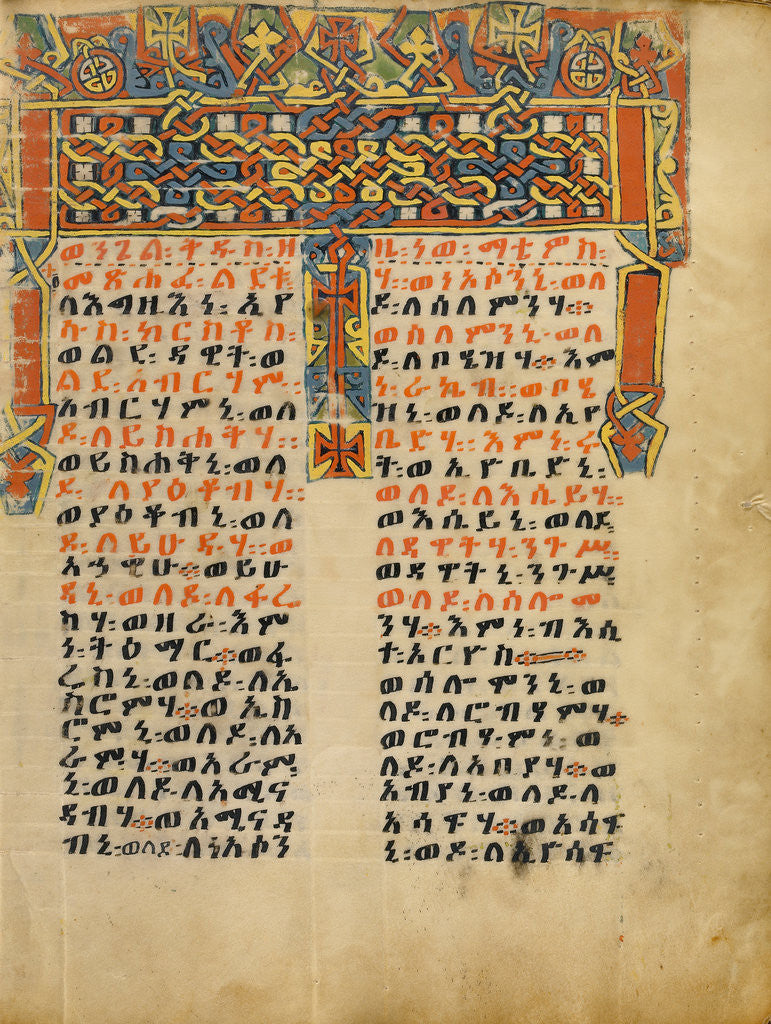 ወንጌል፡ቅዱስ፡ዘ
ዜ፡ነወ፡ማቴዎስ፡
መጽሐፈ፡ልደቱ
ለእግዚእነ፡ኢየ
ሱስ፡ክርስቶስ፡
ወልደ፡ዳዊት፡ወ
ልደ፡አብርሃም፡፡
አብርሃምኒ፡ወለ
ዶ፡ለይስሐቅሃ፡፡
ወይስሐቅኒ፡ወለ
ዶ፡ ለያዕቆብሃ፡፡
ወያዕቆብኒ፡ወለ
ዶ፡ለይሁዳሃ፡፡ወ
አኀዊሁ፡፡ወይሁ
ዳኒ፡ወለዶ፡ለፋሬ
ስሃ፡ወዘራ፡እም
ነ፡ትዕማር፡፡ወፋ
ሬስኒ፡ወለዶ፡ለኤ
ስሮምሃ፡፡ወኤስ
ሮምኒ፡ወለዶ፡ለአ
ራምሃ፡፡ወአራም
ኒ፡ወለዶ፡ለአሚና
ዳብሃ፡፡ወአሚናዳ
ብኒ፡ወለደ፡ለነአሶን
ሃ፡፡ወነአሶንኒ፡ወለ
ዶ፡ለሰለምንሃ፡፡
ወሰለምንኒ፡ወለ
ዶ፡ለቦዔዝሃ፡፡እም
ነ፡ራኬብ፡፡ወቦዔ
ዝኒ፡ወለዶ፡ለኢዮ
ቤድሃ፡፡እምነ፡ሩ
ት፡ወኢዮቤድኒ፡
ወለዶ፡ለእሴይሃ፡፡
ወእሴይኒ፡ወለደ፡
ለዳዊትሃ፡ንጉሥ፡፡
ወዳዊትኒ፡ንጉሥ
ወለዶ፡ለሰሎሞ
ንሃ፡፡እምነ፡ብእሲ
ተ፡ኦርዮስ፡፡
ወሰሎሞንኒ፡ወ
ለዶ፡ለሮብዓምሃ፡፡
ወሮብዓምኒ፡ወ
ለዶ፡ለአቢያሃ፡፡ወ
አብያኒ፡ወለዶ፡ለ
አሳፍሃ፡፡ወአሳፍ
ኒ፡ወዶ፡ለኢዮሳፍ